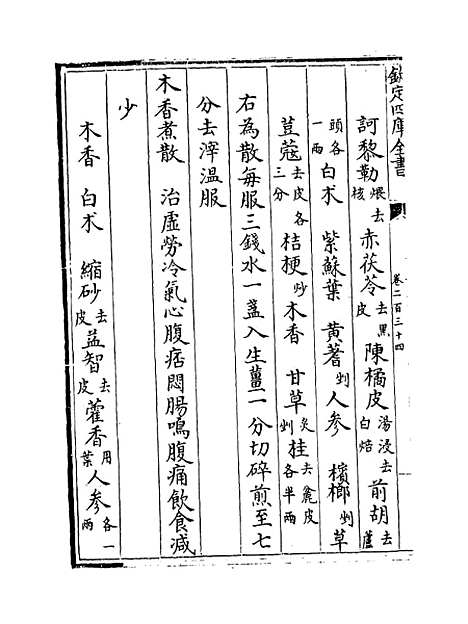 欽定四庫全書
卷二百三十四
訶黎勒煨去核赤茯苓去黑皮陳橘皮湯浸去白焙前胡去蘆
頭各一兩白朮 紫蘇葉 黄蓍剉人參 檳榔剉草
荳蔻去皮各三分桔梗炒木香 甘草炙剉桂去麄皮各半兩
右為散每服三錢水一盞入生薑一分切碎煎至七
分去滓温服
木香煮散 治虚勞冷氣心腹痞悶腸鳴腹痛飲食減
少
木香 白朮 縮砂去皮益智去皮藿香用葉人參各一兩